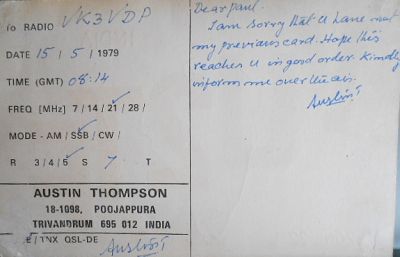 To RADIO VK3VDP
DATE 15 / 5 / 1979
TIME (GMT) 08:14
FREQ [MHz] 7/14/21/28/
MODE - AM/SSB/CW/
R 3/4/5 S 7 T
AUSTIN THOMPSON
18-1098, POOJAPPURA
TRIVANDRUM 695 012 INDIA
E/TNX QSL-DE
Dear paul.
I am sorry that u have not
my previous card. Hope this
reaches u in good order. Kindly
inform me over the air.